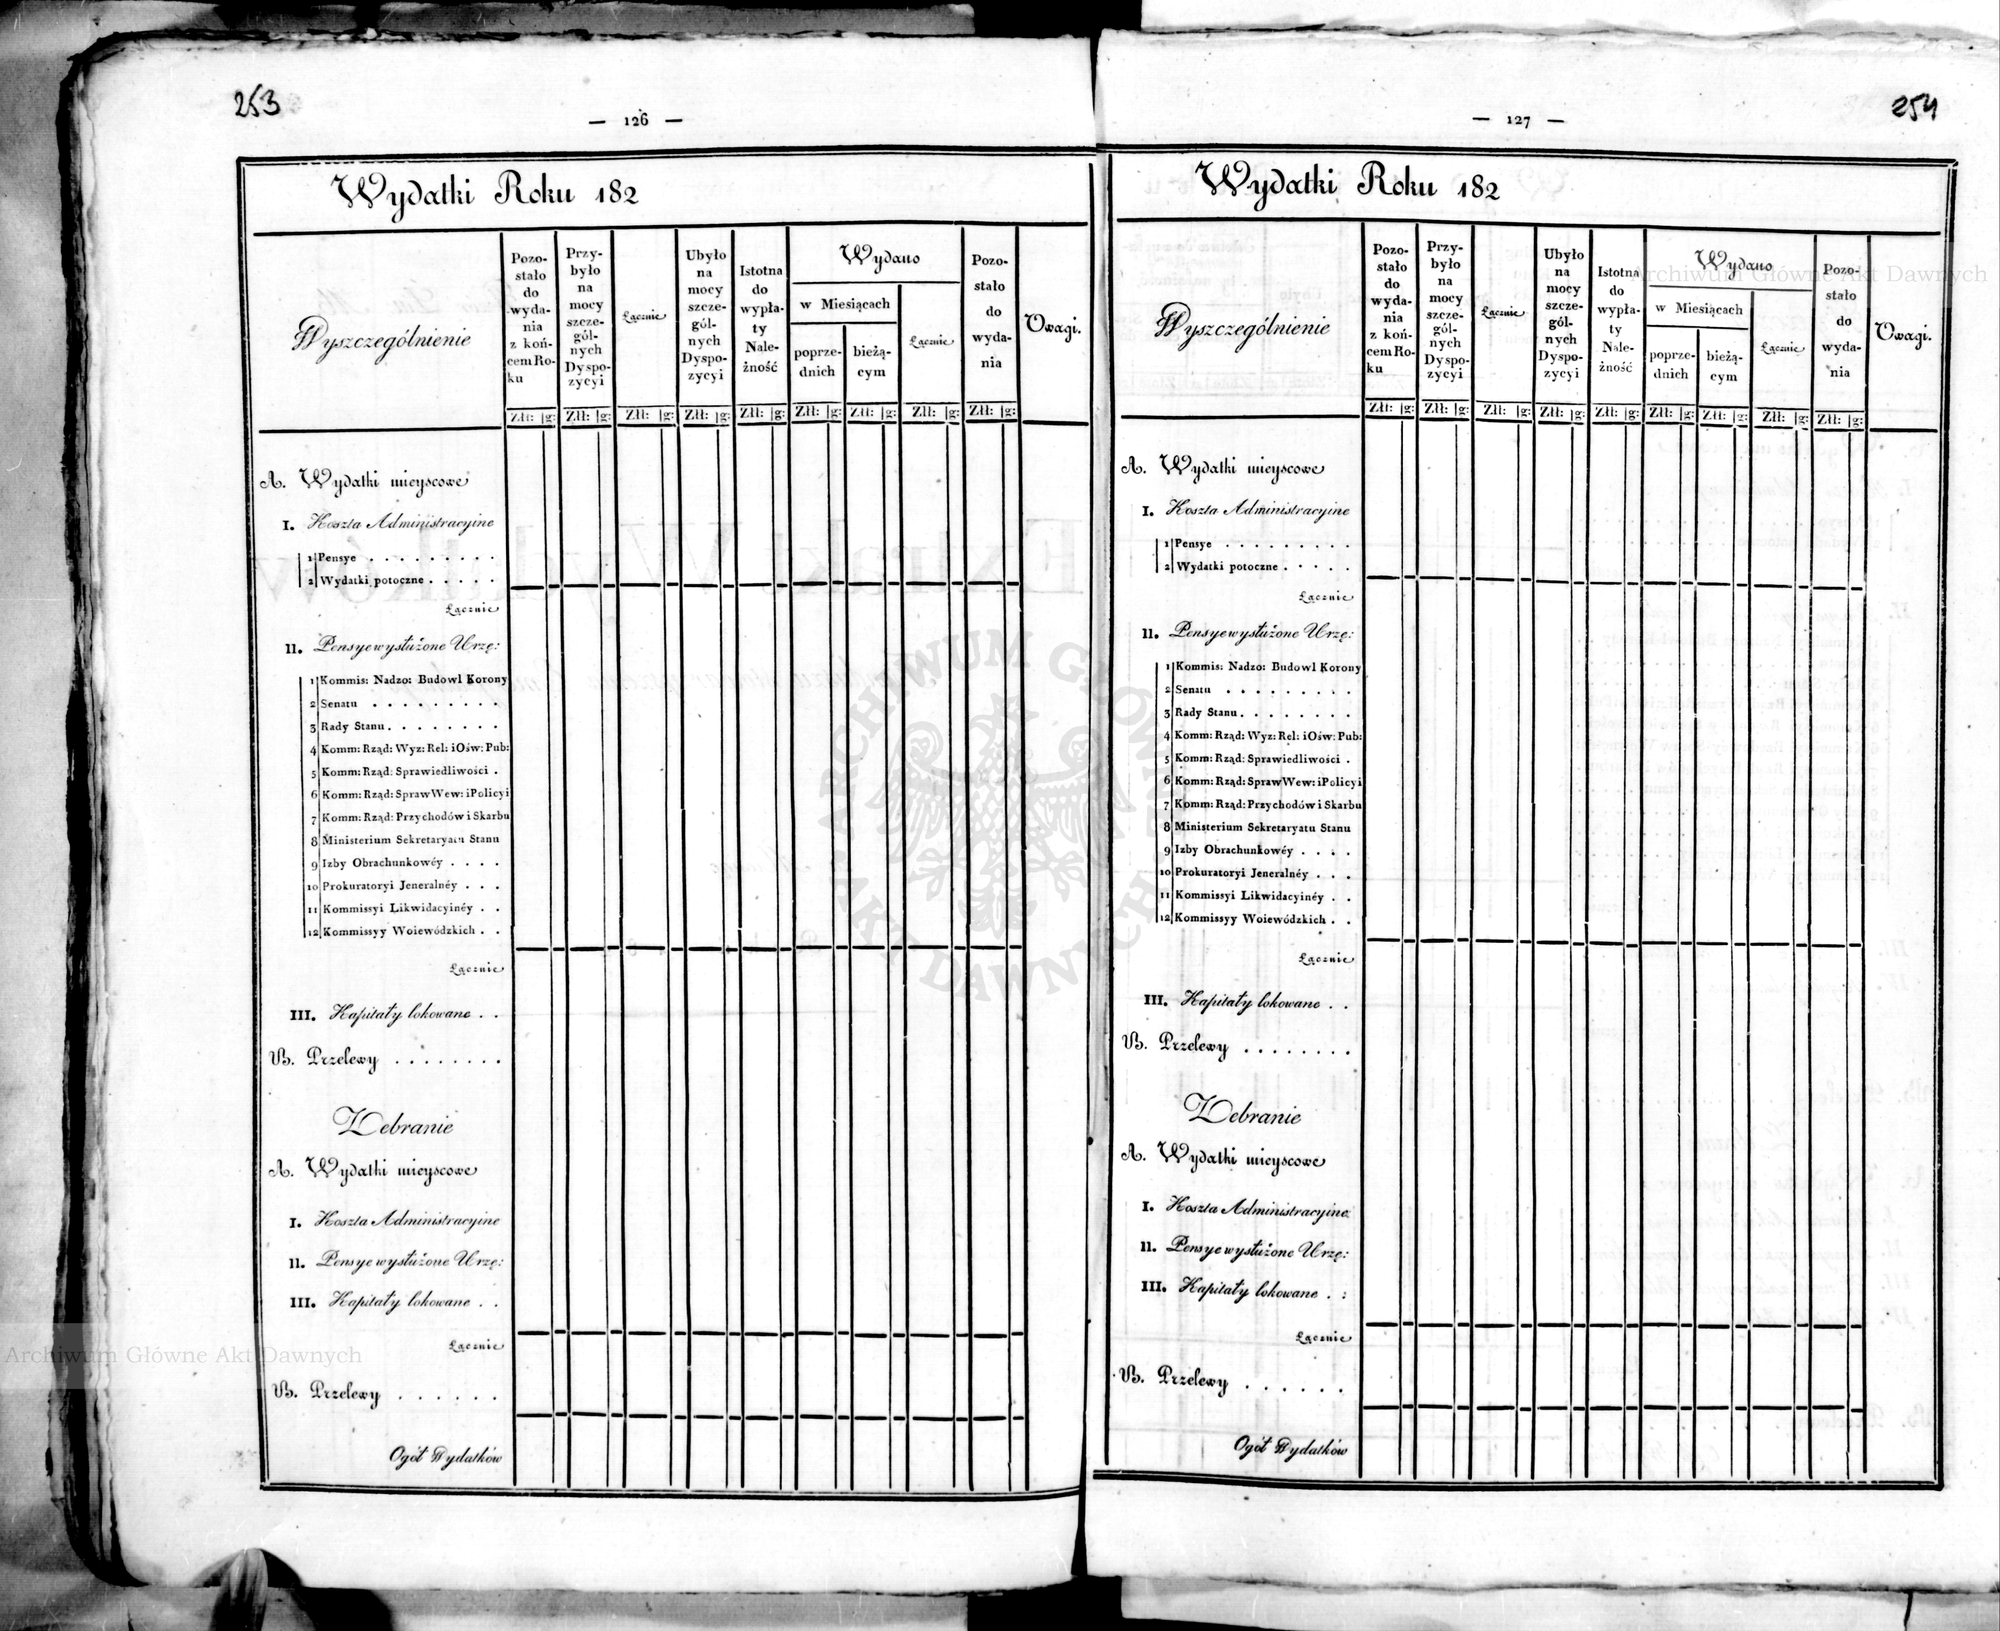 253
— 126 —
Wydatki Roku 182
Wyszczególnienie
Pozo-
stało
do
wyda-
nia
z koń-
cem Ro-
ku
Przy-
było
na
mocy
szcze-
gól-
nych
Dyspo-
zycyi
Łącznie
Ubyło
na
mocy
szcze-
gól-
nych
Dyspo-
zycyi
Istotna
do
wypła-
ty
Nale-
żność
Wydano
w Miesiącach
poprze-
dnich
bieżą-
cym
Łącznie
Pozo-
stało
do
wyda-
nia
Uwagi.
Złł: g: Złł: g: Złł: g: Złł: g: Złł: g: Złł: g: Złł: g: Złł: g: Złł: g:
A. Wydatki mieyscowe
I. Koszta Administracyine
1 Pensye . . . . . . . . .
2 Wydatki potoczne . . . . .
Łącznie
II. Pensye wysłużone Urzę:
1 Kommis: Nadzo: Budowl Korony
2 Senatu . . . . . . . . .
3 Rady Stanu . . . . . . . .
4 Komm: Rząd: Wyz: Rel: i Ośw: Pub:
5 Komm: Rząd: Sprawiedliwości .
6 Komm: Rząd: Spraw Wew: i Policyi
7 Komm: Rząd: Przychodów i Skarbu
8 Ministerium Sekretaryatu Stanu
9 Izby Obrachunkowéy . . . .
10 Prokuratoryi Jeneralnéy . . .
11 Kommissyi Likwidacyinéy . .
12 Kommissyy Woiewódzkich . .
Łącznie
III. Kapitały lokowane . .
B. Przelewy . . . . . . . .
Zebranie
A. Wydatki mieyscowe
I. Koszta Administracyine
II. Pensye wysłużone Urzę:
III. Kapitały lokowane . .
Łącznie
B. Przelewy . . . . . .
Ogół Wydatków
254
— 127 —
Wydatki Roku 182
Wyszczególnienie
Pozo-
stało
do
wyda-
nia
z koń-
cem Ro-
ku
Przy-
było
na
mocy
szcze-
gól-
nych
Dyspo-
zycyi
Łącznie
Ubyło
na
mocy
szcze-
gól-
nych
Dyspo-
zycyi
Istotna
do
wypła-
ty
Nale-
żność
Wydano
w Miesiącach
poprze-
dnich
bieżą-
cym
Łącznie
Pozo-
stało
do
wyda-
nia
Uwagi.
Złł: g: Złł: g: Złł: g: Złł: g: Złł: g: Złł: g: Złł: g: Złł: g: Złł: g:
A. Wydatki mieyscowe
I. Koszta Administracyine
1 Pensye . . . . . . . . .
2 Wydatki potoczne . . . . .
Łącznie
II. Pensye wysłużone Urzę:
1 Kommis: Nadzo: Budowl Korony
2 Senatu . . . . . . . . .
3 Rady Stanu . . . . . . . .
4 Komm: Rząd: Wyz: Rel: i Ośw: Pub:
5 Komm: Rząd: Sprawiedliwości .
6 Komm: Rząd: Spraw Wew: i Policyi
7 Komm: Rząd: Przychodów i Skarbu
8 Ministerium Sekretaryatu Stanu
9 Izby Obrachunkowéy . . . .
10 Prokuratoryi Jeneralnéy . . .
11 Kommissyi Likwidacyinéy . .
12 Kommissyy Woiewódzkich . .
Łącznie
III. Kapitały lokowane . .
B. Przelewy . . . . . . . .
Zebranie
A. Wydatki mieyscowe
I. Koszta Administracyine
II. Pensye wysłużone Urzę:
III. Kapitały lokowane . :
Łącznie
B. Przelewy . . . . . .
Ogół Wydatków
Archiwum Główne Akt Dawnych
ARCHIWUM GŁÓWNE AKT DAWNYCH
Archiwum Główne Akt Dawnych